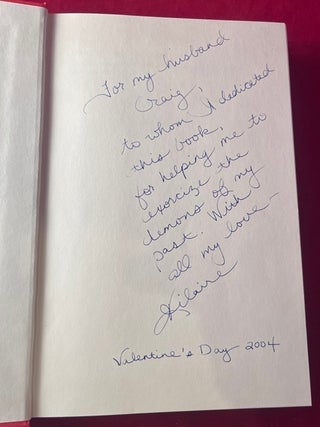 For my husband
Craig,
to whom I dedicated
this book,
for helping me to
exorcize the
demons of my
past. With
all my love—
Hilaire
Valentine's Day 2004